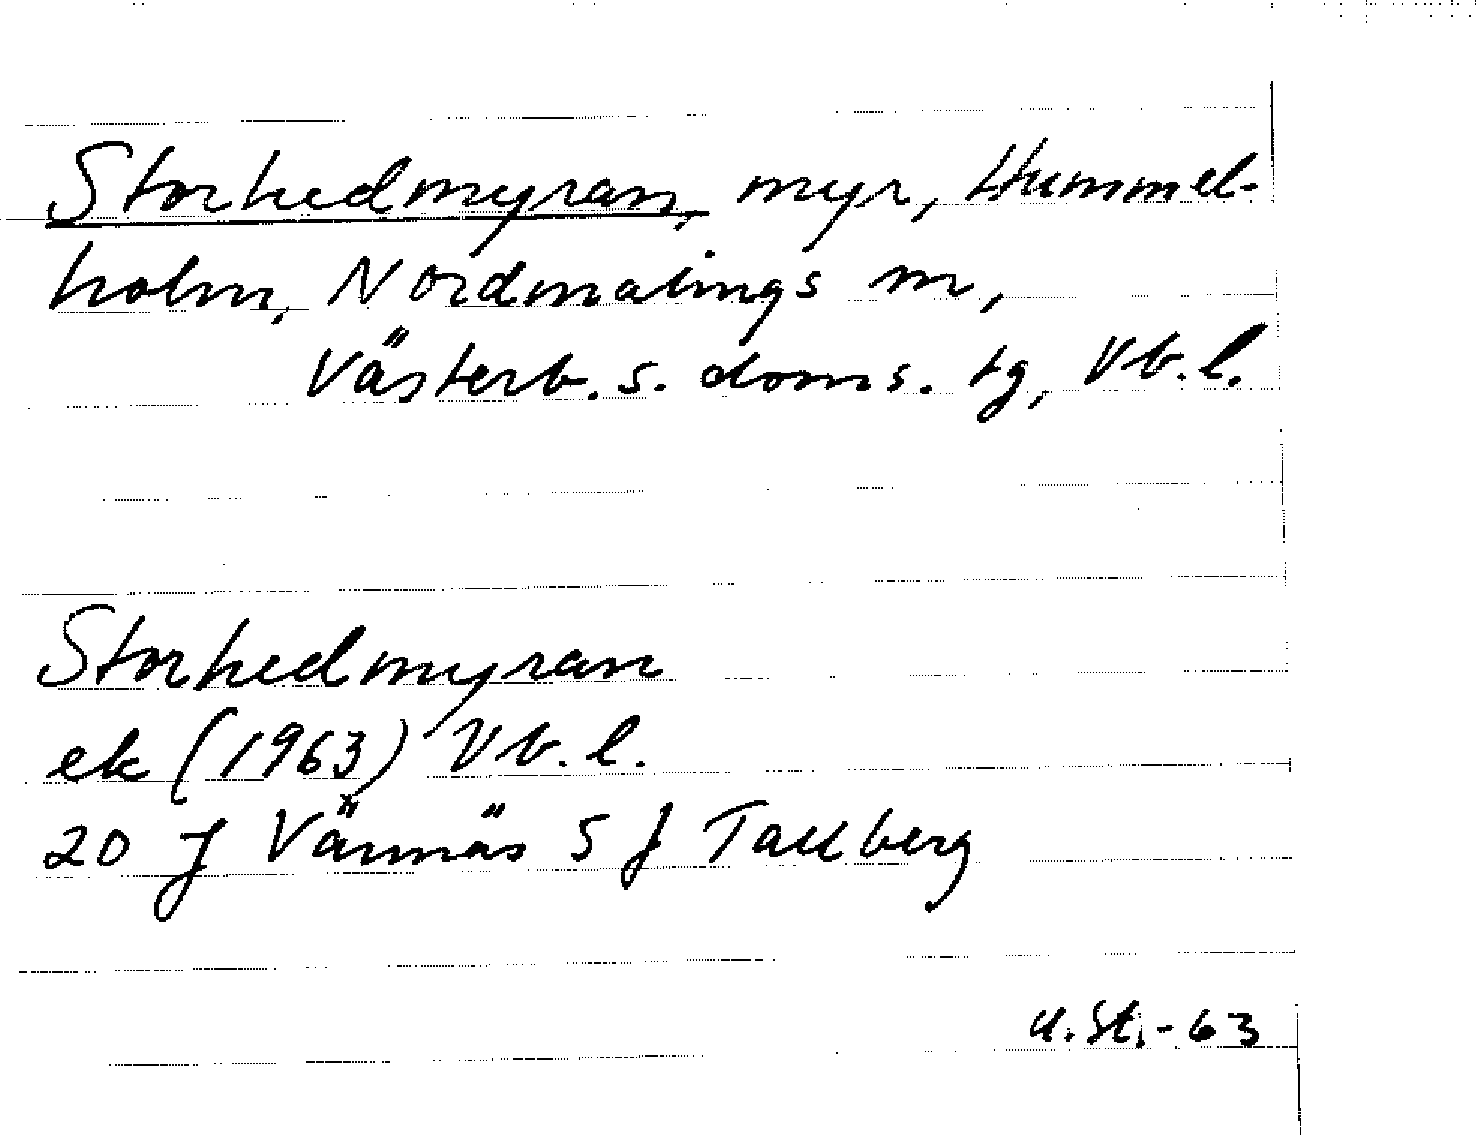 Storhedmyran, myr, Hummel-
holm, Nordmalings m,
Västerb. s. doms. tg, Vb. l.
Storhedmyran
ek (1963) Vb. l.
20 J Vännäs S f Tallberg
U. St. - 63